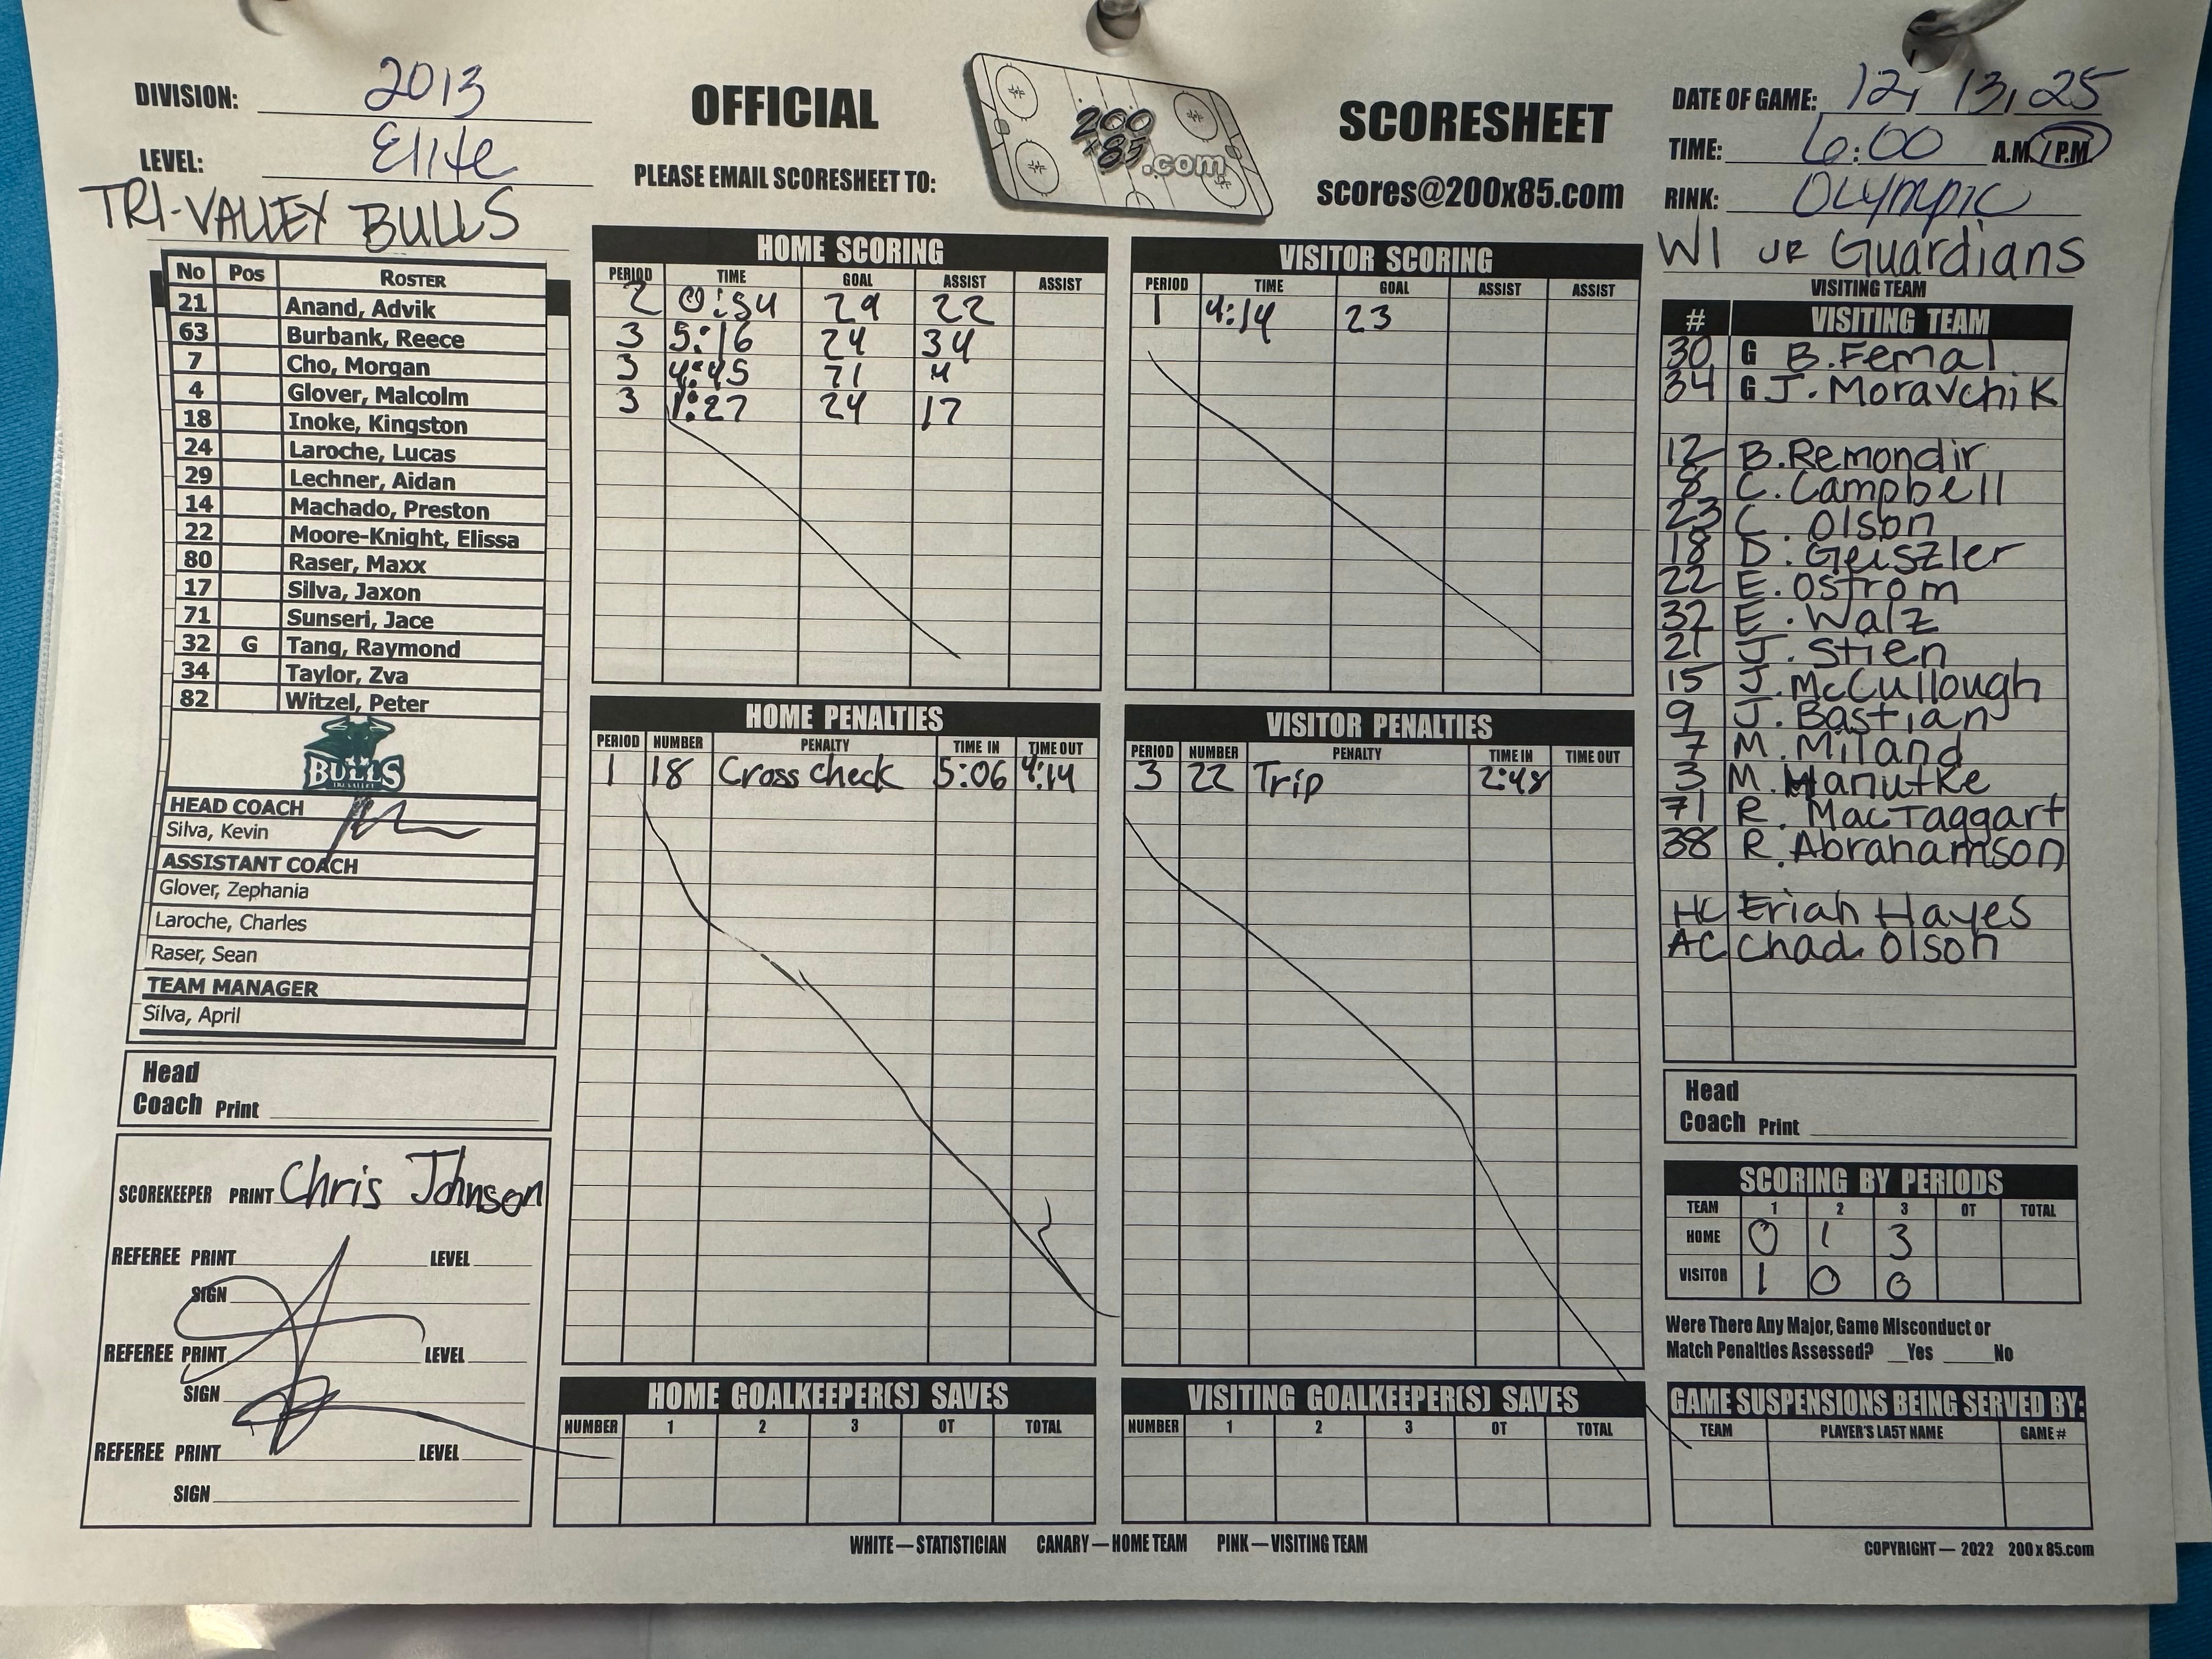 DIVISION: 2013
LEVEL: Elite
TRI-VALLEY BULLS
OFFICIAL SCORESHEET
PLEASE EMAIL SCORESHEET TO: scores@200x85.com
200 x 85 .com
DATE OF GAME: 12, 13, 25
TIME: 6:00 A.M./P.M.
RINK: Olympic
WI JR Guardians
VISITING TEAM
No Pos ROSTER
21 Anand, Advik
63 Burbank, Reece
7 Cho, Morgan
4 Glover, Malcolm
18 Inoke, Kingston
24 Laroche, Lucas
29 Lechner, Aidan
14 Machado, Preston
22 Moore-Knight, Elissa
80 Raser, Maxx
17 Silva, Jaxon
71 Sunseri, Jace
32 G Tang, Raymond
34 Taylor, Zva
82 Witzel, Peter
BULLS
TRI-VALLEY
HEAD COACH
Silva, Kevin
ASSISTANT COACH
Glover, Zephania
Laroche, Charles
Raser, Sean
TEAM MANAGER
Silva, April
Head
Coach Print
SCOREKEEPER PRINT Chris Johnson
REFEREE PRINT LEVEL
SIGN
REFEREE PRINT LEVEL
SIGN
REFEREE PRINT LEVEL
SIGN
HOME SCORING
PERIOD TIME GOAL ASSIST ASSIST
2 0:54 29 22
3 5:16 24 34
3 4:45 71 4
3 1:27 24 17
VISITOR SCORING
PERIOD TIME GOAL ASSIST ASSIST
1 4:14 23
HOME PENALTIES
PERIOD NUMBER PENALTY TIME IN TIME OUT
1 18 Cross check 5:06 4:14
VISITOR PENALTIES
PERIOD NUMBER PENALTY TIME IN TIME OUT
3 22 Trip 2:48
HOME GOALKEEPER(S) SAVES
NUMBER 1 2 3 OT TOTAL
VISITING GOALKEEPER(S) SAVES
NUMBER 1 2 3 OT TOTAL
# VISITING TEAM
30 G B.Femal
34 G J.Moravchik
12 B.Remondir
8 C.Campbell
23 C. Olson
18 D. Geiszler
22 E.Ostrom
32 E.Walz
21 J.Stien
15 J.McCullough
9 J.Bastian
7 M.Miland
3 M.Hanutke
71 R. MacTaggart
38 R.Abrahamson
HC Eriah Hayes
AC Chad Olson
Head
Coach Print
SCORING BY PERIODS
TEAM 1 2 3 OT TOTAL
HOME 0 1 3
VISITOR 1 0 0
Were There Any Major, Game Misconduct or
Match Penalties Assessed? __Yes ____No
GAME SUSPENSIONS BEING SERVED BY:
TEAM PLAYER'S LAST NAME GAME #
WHITE — STATISTICIAN CANARY — HOME TEAM PINK — VISITING TEAM
COPYRIGHT — 2022 200 x 85.com